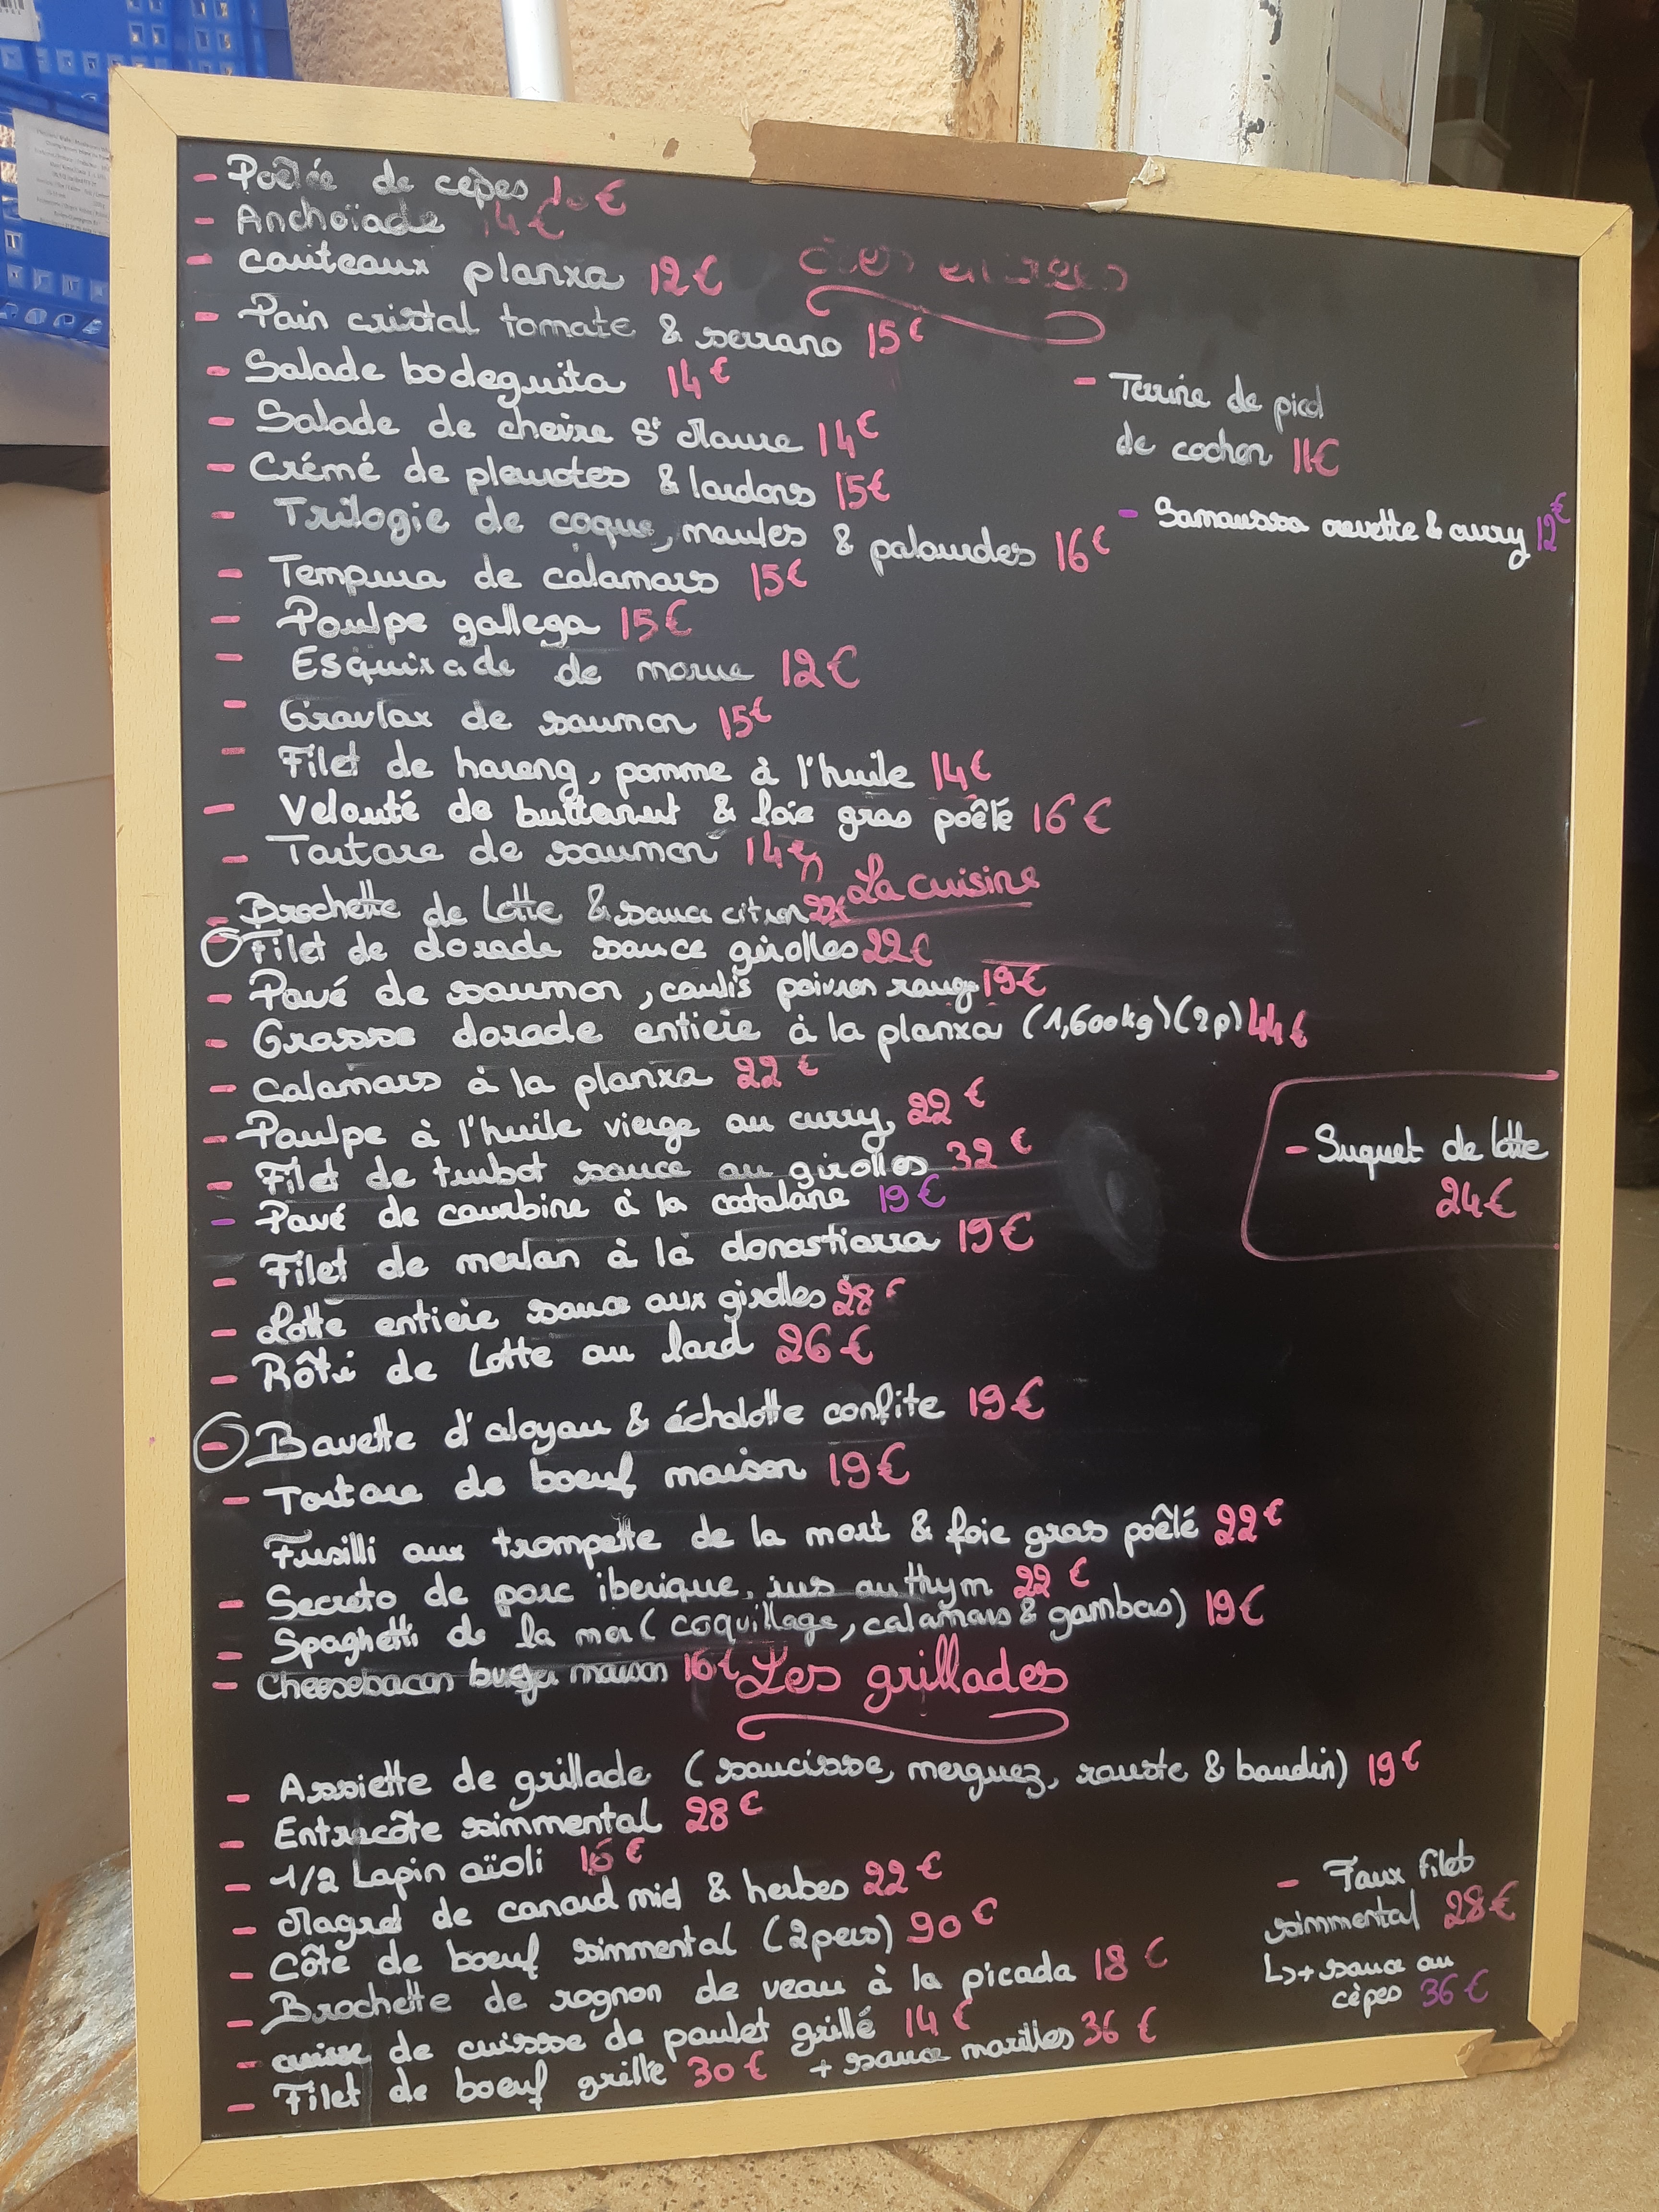 - Poêlée de cèpes
- Anchoïade 14€
- couteaux planxa 12€
Les entrées
- Pain cristal tomate & serrano 15€
- Salade bodeguita 14€
- Terrine de pied
de cochon 11€
- Salade de chèvre St Maure 14€
- Crémé de pleurotes & lardons 15€
- Trilogie de coque, moules & palourdes 16€
- Samoussa crevette & curry 12€
- Tempura de calamars 15€
- Poulpe gallega 15€
- Esquixade de morue 12€
- Gravlax de saumon 15€
- Filet de hareng, pomme à l'huile 14€
- Velouté de butternut & foie gras poêlé 16€
- Tartare de saumon 14€
La cuisine
- Brochette de Lotte & sauce citron
- Filet de dorade sauce girolles 22€
- Pavé de saumon, coulis poivron rouge 19€
- Grosse dorade entière à la planxa (1,600kg) (2p) 44€
- calamars à la planxa 22€
- Poulpe à l'huile vierge au curry 22€
- Filet de turbot sauce au girolles 32€
- Pavé de courbine à la catalane 19€
- Suquet de lotte
24€
- Filet de merlan à la donostiarra 19€
- Lotte entière sauce aux girolles 28€
- Rôti de Lotte au lard 26€
- Bavette d'aloyau & échalotte confite 19€
- Tartare de boeuf maison 19€
Fusilli aux trompette de la mort & foie gras poêlé 22€
- Secreto de porc iberique, jus au thym 22€
- Spaghetti de la mer (coquillage, calamars & gambas) 19€
- Cheesebacon burger maison 16€
Les grillades
- Assiette de grillade (saucisse, merguez, rouste & boudin) 19€
- Entrecôte simmental 28€
- 1/2 Lapin aïoli 16€
- Magret de canard miel & herbes 22€
- Côte de boeuf simmental (2pers) 90€
- Brochette de rognon de veau à la picada 18€
- cuisse de cuissse de poulet grillé 14€
- Filet de boeuf grillé 30€ + sauce morilles 36€
- Faux filet
simmental 28€
↳ + sauce au
cèpes 36€